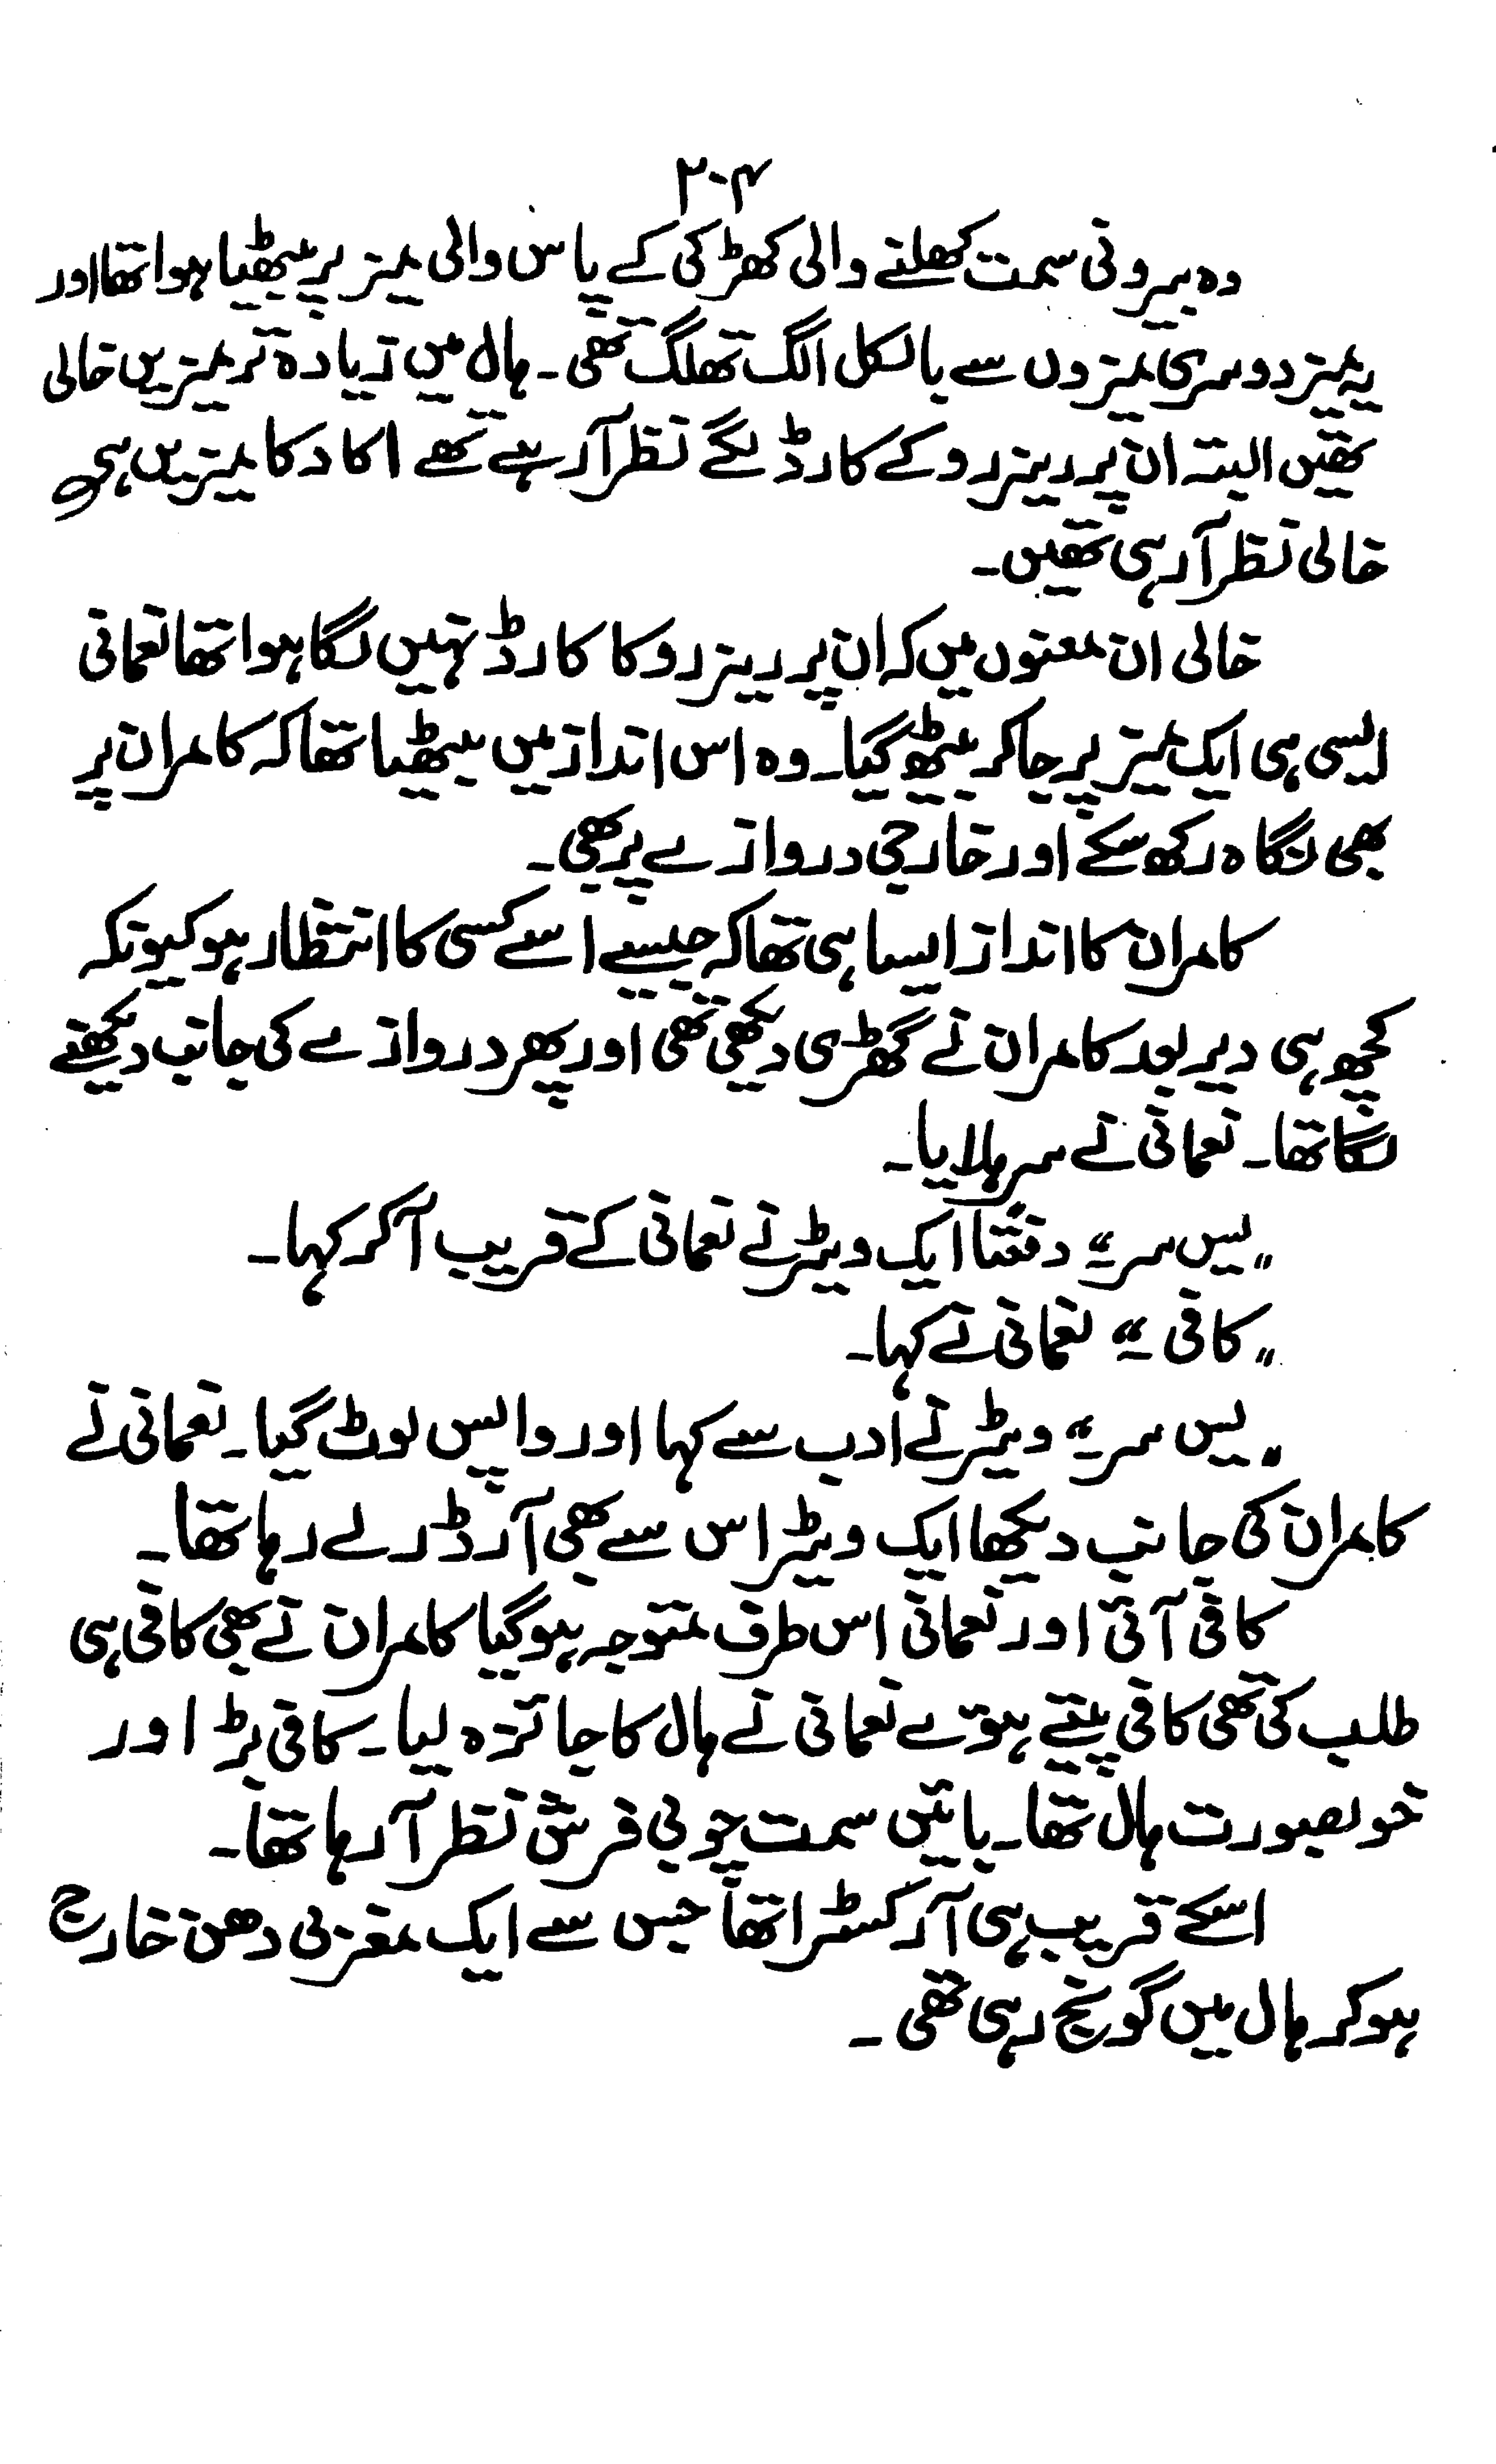 ۳۰۴
وہ بیرونی سمت کھلنے والی کھڑکی کے پاس والی میز پر بیٹھیا ہوا تھا اور
یہ میز دوسری میزوں سے بالکل الگ تھلگ تھی۔ ہال میں زیادہ تر میزیں خالی
تھیں البتہ ان پر ریزرو کے کارڈ لگے نظر آ رہے تھے اکا دکا میزیں ہی
خالی نظر آ رہی تھیں۔
خالی ان معنوں میں کہ ان پر ریزرو کا کارڈ نہیں لگا ہوا تھا نعمانی
ایسی ہی ایک میز پر جا کر بیٹھ گیا۔ وہ اس انداز میں بیٹھیا تھا کہ کامران پر
بھی نگاہ رکھ سکے اور خارجی دروازے پر بھی۔
کامران کا انداز ایسا ہی تھا کہ جیسے اسے کسی کا انتظار ہو کیونکہ
کچھ ہی دیر بعد کامران نے گھڑی دیکھی تھی اور پھر دروازے کی جانب دیکھنے
لگا تھا۔ نعمانی نے سر ہلایا۔
"یس سر۔" دفعتاً ایک ویٹر نے نعمانی کے قریب آ کر کہا۔
"کافی۔" نعمانی نے کہا۔
"یس سر۔" ویٹر نے ادب سے کہا اور واپس لوٹ گیا۔ نعمانی نے
کامران کی جانب دیکھا ایک ویٹر اس سے بھی آرڈر لے رہا تھا۔
کافی آئی اور نعمانی اس طرف متوجہ ہو گیا کامران نے بھی کافی ہی
طلب کی تھی کافی پیتے ہوئے نعمانی نے ہال کا جائزہ لیا۔ کافی بڑا اور
خوبصورت ہال تھا۔ بائیں سمت چوبی فرش نظر آ رہا تھا۔
اسکے قریب ہی آرکسٹرا تھا جس سے ایک مغربی دھن خارج
ہو کر ہال میں گونج رہی تھی۔